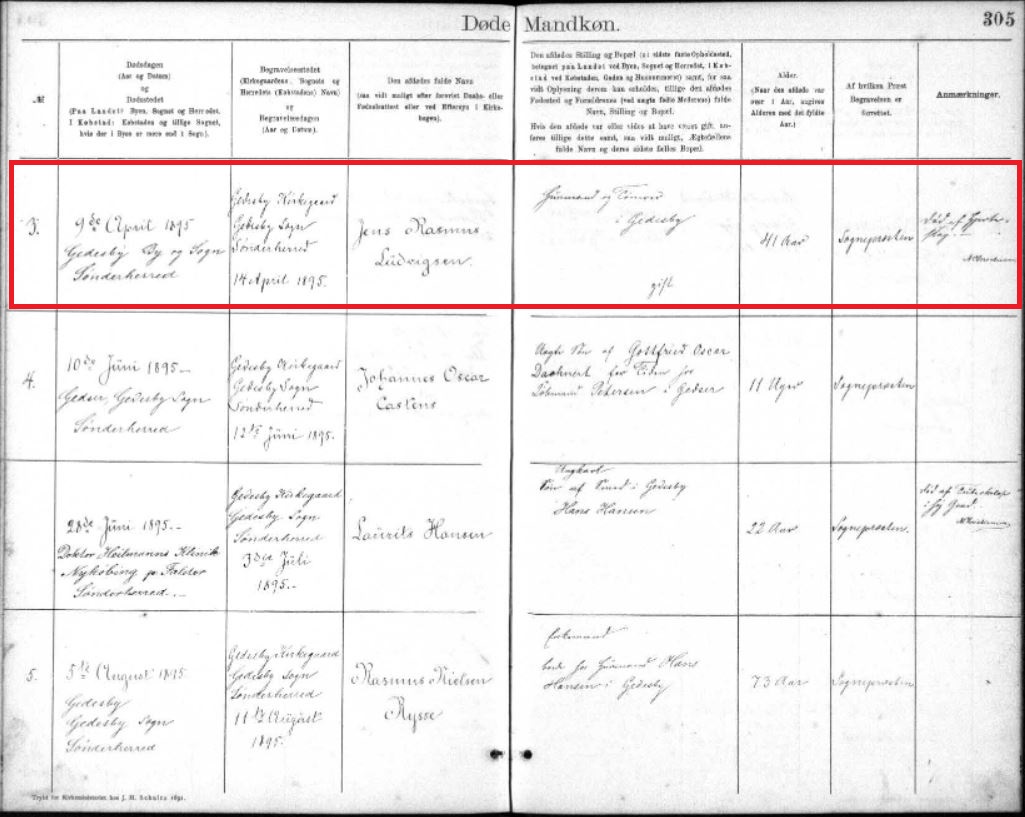 Døde Mandkøn.
305
№
Dødsdagen
(Aar og Datum)
og
Dødsstedet
(Paa Landet: Byen, Sognet og Herredet.
I Købstad: Købstaden og tillige Sognet,
hvis der i Byen er mere end 1 Sogn).
Begravelsesstedet
(Kirkegaardens, Sognets og
Herredets (Købstadens) Navn)
og
Begravelsesdagen
(Aar og Datum).
Den afdødes fulde Navn
(saa vidt muligt efter forevist Daabs- eller
Fødselsattest eller ved Eftersyn i Kirke-
bogen).
Den afdødes Stilling og Bopæl (o: sidste faste Opholdssted,
betegnet paa Landet ved Byen, Sognet og Herredet, i Køb-
stad ved Købstaden, Gaden og Husnummeret) samt, for saa
vidt Oplysning derom kan erholdes, tillige den afdødes
Fødested og Forældrenes (ved uægte fødte Moderens) fulde
Navn, Stilling og Bopæl.
Hvis den afdøde var eller vides at have været gift, an-
føres tillige dette samt, saa vidt muligt, Ægtefællens
fulde Navn og deres sidste fælles Bopæl.
Alder.
(Naar den afdøde var
over 1 Aar, angives
Alderen med det fyldte
Aar.)
Af hvilken Præst
Begravelsen er
forrettet.
Anmærkninger.
3.
9de April 1895
Gedesby By og Sogn
Sønderherred
Gedesby Kirkegaard
Gedesby Sogn
Sønderherred
14 April 1895.
Jens Rasmus
Ludvigsen.
Huusmand og Tømrer
i Gedesby
gift
41 Aar
Sognepræsten
død af Hjerte-
slag
4.
10de Juni 1895
Gedser, Gedesby Sogn
Sønderherred
Gedesby Kirkegaard
Gedesby Sogn
Sønderherred
12te Juni 1895.
Johannes Oscar
Castens
Uægte Søn af Gottfried Oscar
Petersen i Gedser
11 Uger
Sognepræsten
28de Juni 1895.
Doktor Heilmanns Klinik
Nykøbing p. Falster
Sønderherred
Gedesby Kirkegaard
Gedesby Sogn
Sønderherred
3die Juli
1895.
Laurits Hansen
Ungkarl
Søn af Smed i Gedesby
Hans Hansen
22 Aar
Sognepræsten.
død af
5.
5te August 1895
Gedesby
Gedesby Sogn
Sønderherred
Gedesby Kirkegaard
Gedesby Sogn
Sønderherred
11te August
1895.
Rasmus Nielsen
Rysse
Enkemand
hos Huusmand Hans
Hansen i Gedesby
73 Aar
Sognepræsten
Trykt for Kirkeministeriet hos J. H. Schultz 1891.